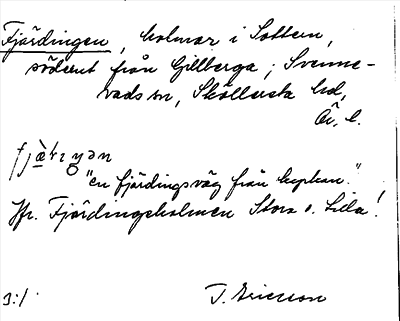 Fjärdingen, holmar i Sottern,
söderut från Gillberga; Svenne-
vads sn, Sköllersta hd,
Ör. l.
"en fjärdingsväg från kyrkan."
Jfr. Fjärdingsholmen Stora o. Lilla!
T. Ericsson